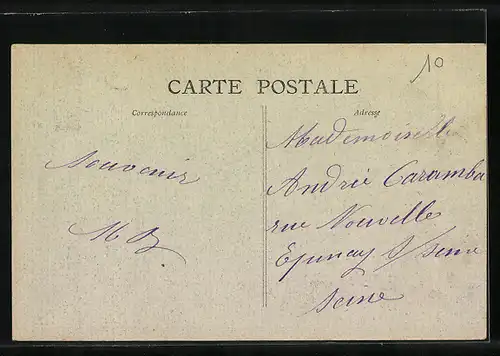 10
CARTE POSTALE
Correspondance
Adresse
Souvenir
M B
Mademoiselle
Andrée Caramba
rue Nouvelle
Epinay S/ Seine
Seine